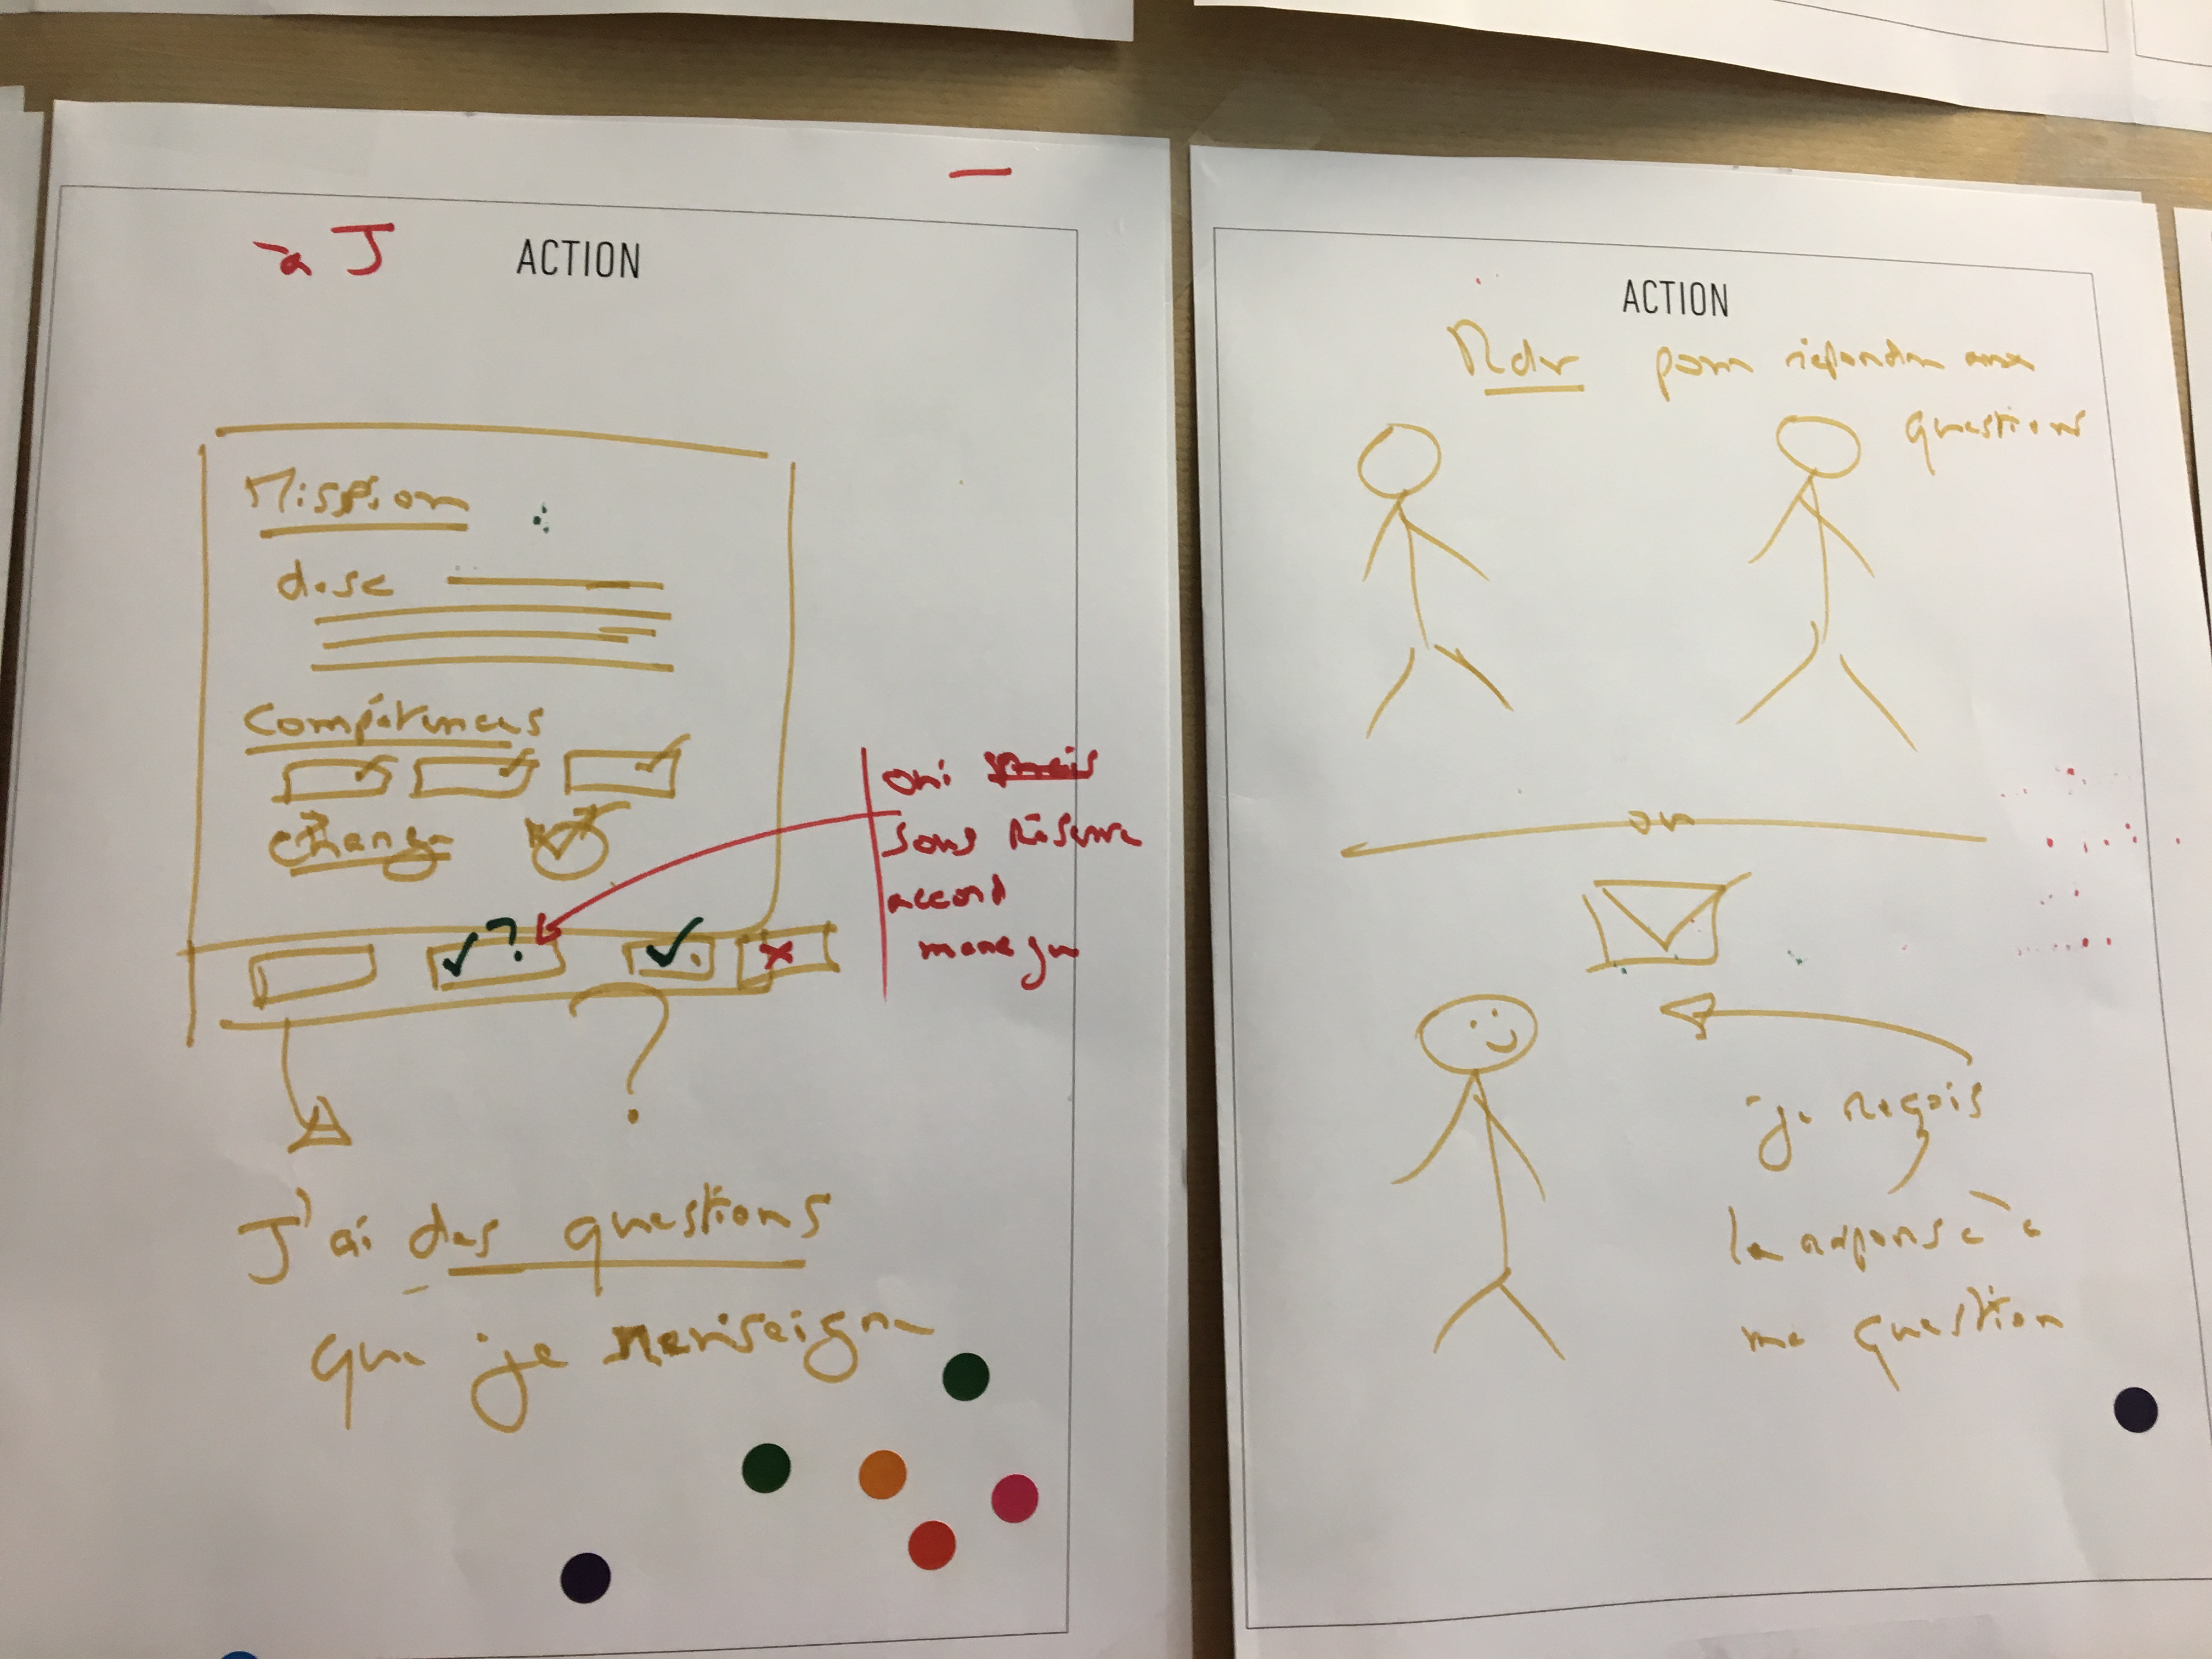 à J
ACTION
Mission
desc
Compétences
change
oui mais
sous réserve
accord
manager
J'ai des questions
que je renseigne
ACTION
Rdv pour répondre aux
questions
ou
je reçois
la réponse à
ma question